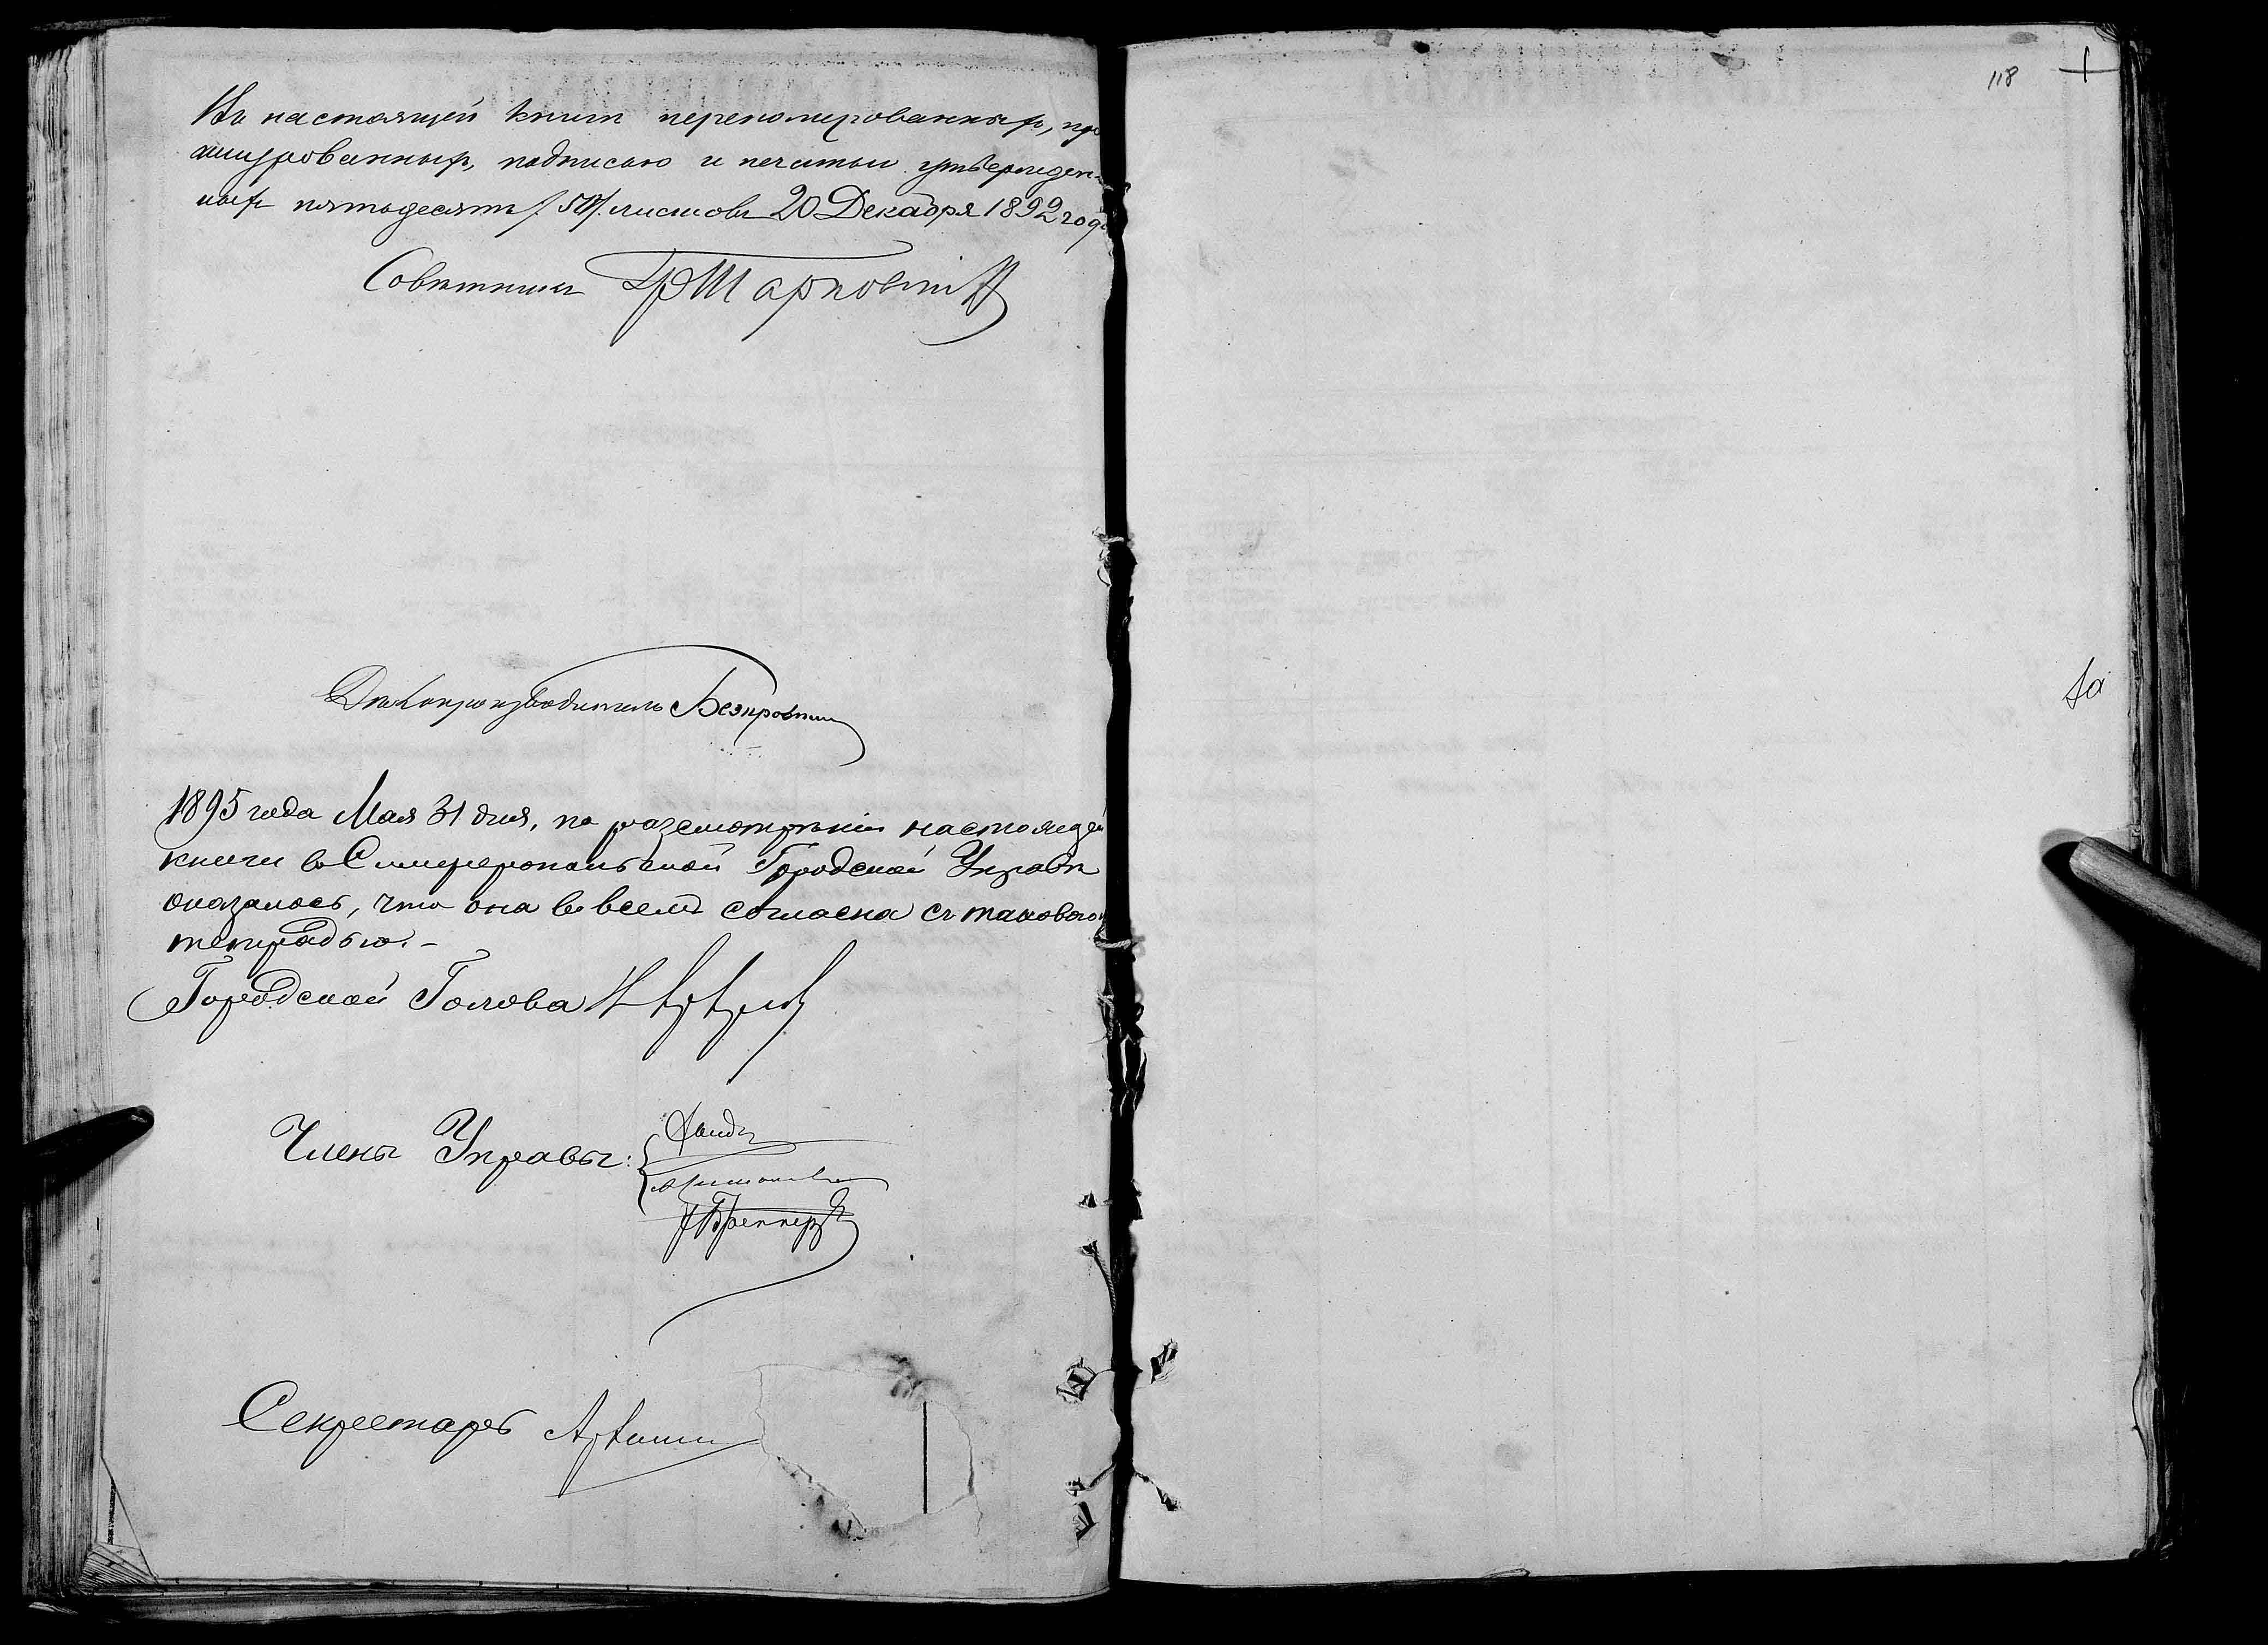 Въ настоящей книгѣ перенумерованныхъ, про
шнурованныхъ, подписью и печатью утвержден-
ныхъ пятьдесятъ /. 50/. листовъ 20 Декабря 1892 года
Совѣтникъ
Дѣлопроизводитель
1895 года Мая 31 дня, по разсмотрѣніи настоящей
книги въ Симферопольской Городской Управѣ
оказалось, что она во всемъ согласна съ таковою
тетрадью.-
Городской Голова
Члены Управы:
Секретарь
118